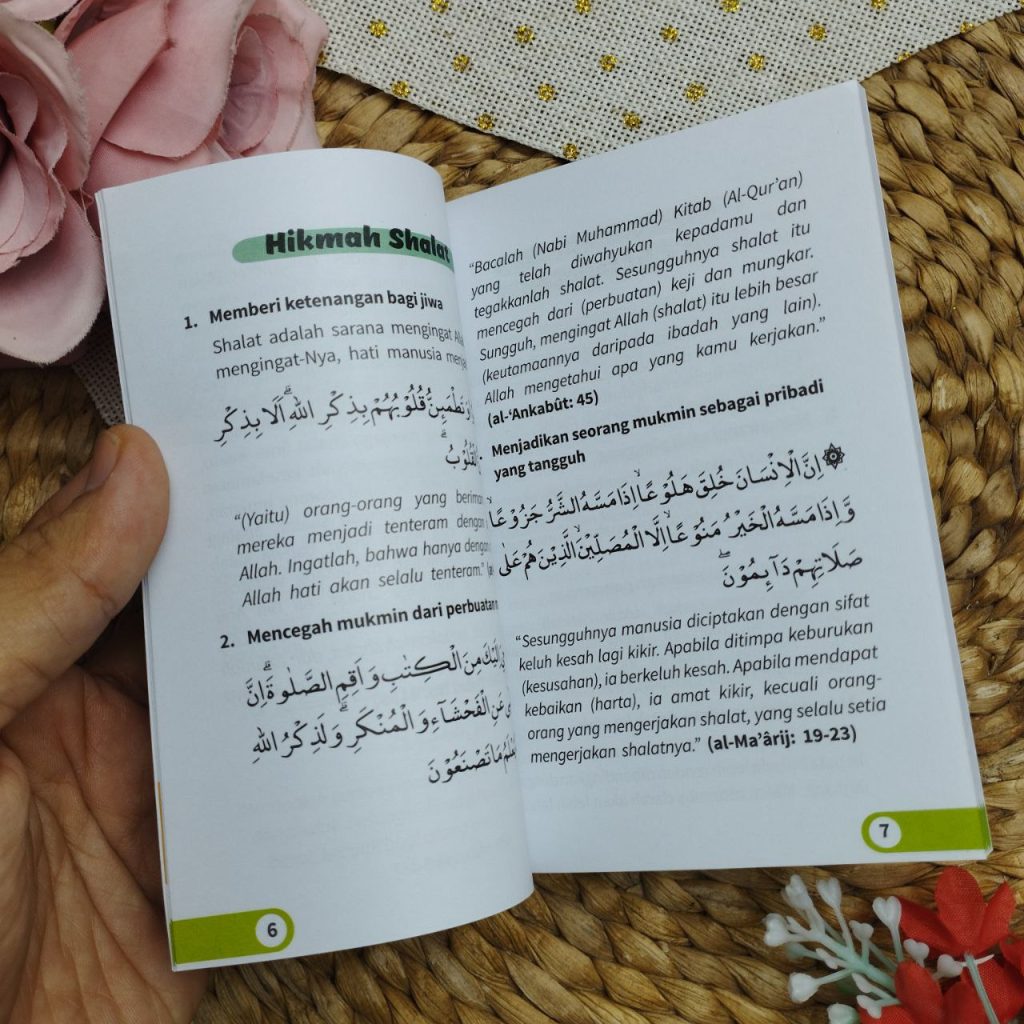 Hikmah Shalat
1. Memberi ketenangan bagi jiwa
Shalat adalah sarana mengingat
mengingat-Nya, hati manusia
تَطْمَىِٕنُّ قُلُوْبُهُمْ بِذِكْرِ اللّٰهِ ۗ اَلَا بِذِكْرِ
الْقُلُوْبُ ۗ
“(Yaitu) orang-orang yang
mereka menjadi tenteram dengan
Allah. Ingatlah, bahwa hanya
Allah hati akan selalu tenteram.”
2. Mencegah mukmin dari perbuatan
اِلَيْكَ مِنَ الْكِتٰبِ وَاَقِمِ الصَّلٰوةَ ۗ اِنَّ
عَنِ الْفَحْشَاۤءِ وَالْمُنْكَرِ ۗ وَلَذِكْرُ اللّٰهِ
مَا تَصْنَعُوْنَ
6
“Bacalah (Nabi Muhammad) Kitab (Al-Qur’an)
yang telah diwahyukan kepadamu dan
tegakkanlah shalat. Sesungguhnya shalat itu
mencegah dari (perbuatan) keji dan mungkar.
Sungguh, mengingat Allah (shalat) itu lebih besar
(keutamaannya daripada ibadah yang lain).
Allah mengetahui apa yang kamu kerjakan.”
(al-‘Ankabût: 45)
Menjadikan seorang mukmin sebagai pribadi
yang tangguh
۞ اِنَّ الْاِنْسَانَ خُلِقَ هَلُوْعًاۙ اِذَا مَسَّهُ الشَّرُّ جَزُوْعًاۙ
وَّاِذَا مَسَّهُ الْخَيْرُ مَنُوْعًاۙ اِلَّا الْمُصَلِّيْنَۙ الَّذِيْنَ هُمْ عَلٰى
صَلَاتِهِمْ دَاۤىِٕمُوْنَۖ
“Sesungguhnya manusia diciptakan dengan sifat
keluh kesah lagi kikir. Apabila ditimpa keburukan
(kesusahan), ia berkeluh kesah. Apabila mendapat
kebaikan (harta), ia amat kikir, kecuali orang-
orang yang mengerjakan shalat, yang selalu setia
mengerjakan shalatnya.” (al-Ma’ârij: 19-23)
7